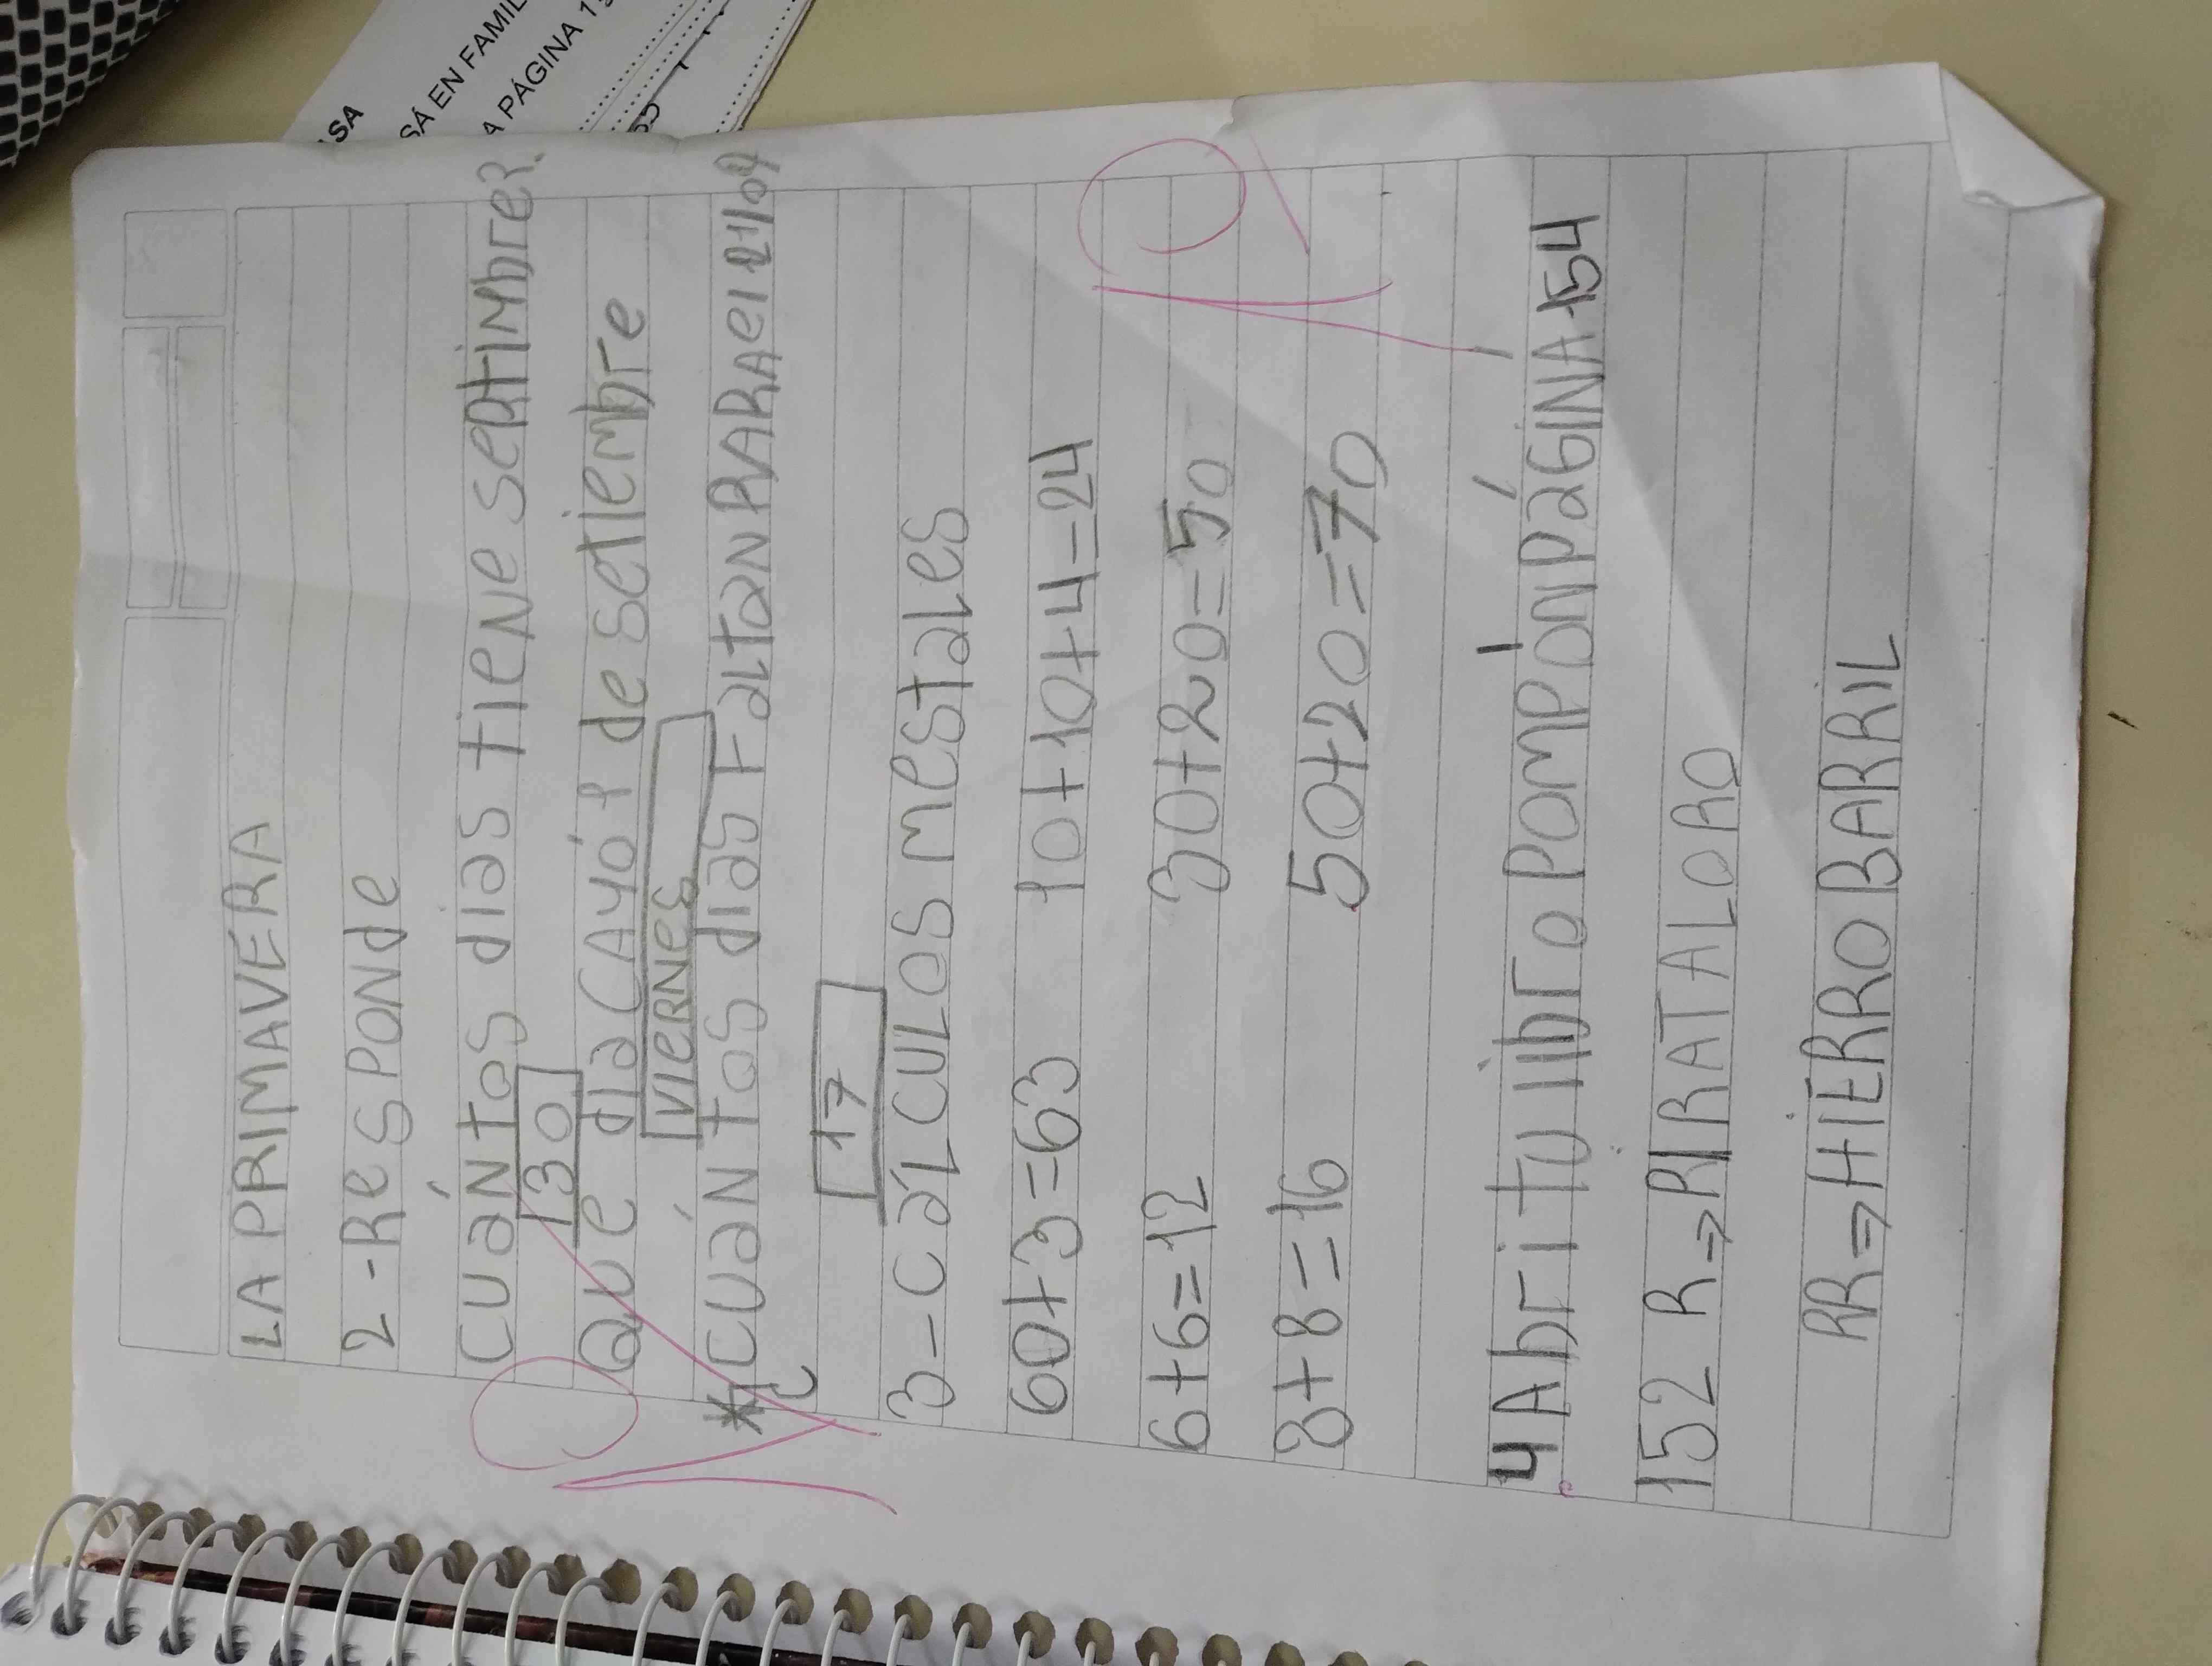 LA PRIMAVERA
2-ResPonde
CUáNtos dias tiene septimbre?.
130
Que dia CAyó 1 de setiembre
VIERNES
*¿CUáNtos dias FaltaN PARA el 21/09
17
3-CálCULOS MestaLes
60+3=63 10+10+4=24
6+6=12 30+20=50
8+8=16 50+20=70
4 Abri tu libro POMPÓN PáGINA 154
152 R⇒RIRATALORO
RR⇒HIERRO BARRIL
SA
SÁ EN FAMIL
A PÁGINA 1